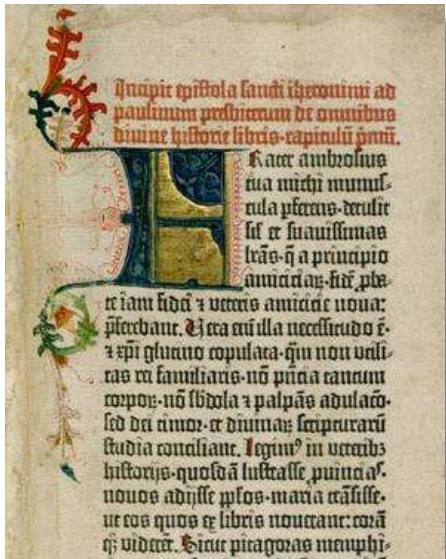 Incipit epistola sancti iheronimi ad
paulinum presbiterum de omnibus
divine historie libris·capitulū p̄mū.
Frater ambrosius
tua michi munus-
cula p̄ferens·detulit
sil̄ et suavissimas
lr̄as·q̄ a principio
amiciciaꝝ·fidē ꝓba-
te iam fidei ⁊ veteris amicicie nova:
p̄ferebant. Vera em̄ illa necessitudo ē·
⁊ xp̄i glutino copulata·qm̄ non utili-
tas rei familiaris·nō p̄ncia tantum
corpoꝝ·nō sb̄dola ⁊ palpās adulaco·
sed dei timor·et divinaꝝ scripturarū
studia conciliant. Legim⁹ in veteribꝫ
historijs·quosdā lustrasse ꝓuincias·
novos adijsse pl̄os·maria trāsisse·
ut eos quos ex libris noverant: corā
qꝫ viderēt. Sicut pitagoras memphi-